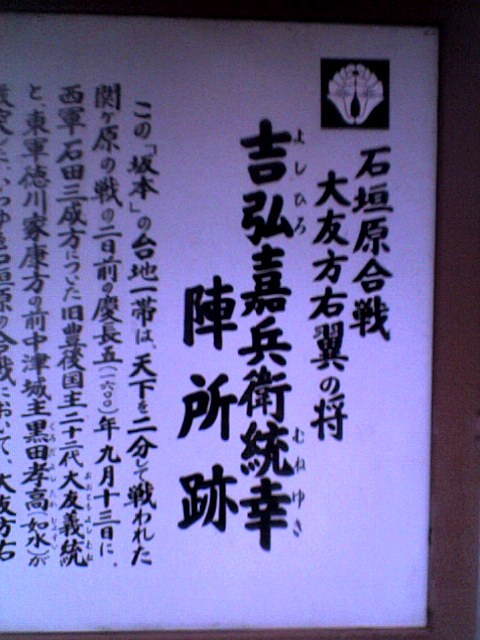 石垣原合戦
大友方右翼の将
吉弘嘉兵衛統幸
よしひろ
むねゆき
陣所跡
この「坂本」の台地一帯は、天下を二分して戦われた
関ヶ原の戦の二日前の慶長五(一六〇〇)年九月十三日に、
西軍石田三成方についた旧豊後国主二十二代大友義統
おおともよしむね
と、東軍徳川家康方の前中津城主黒田孝高(如水)が
くろだよしたか じょすい
激突した、いわゆる石垣原の合戦において、大友方右